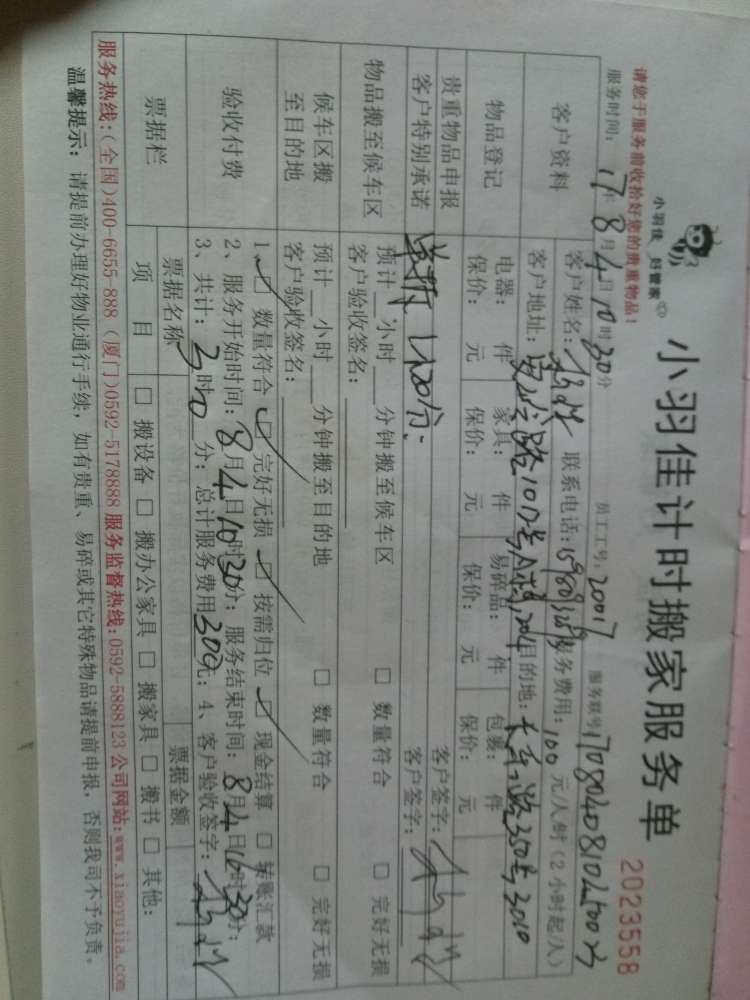 小羽佳 好管家
小羽佳计时搬家服务单
2023558
请您于服务前收拾好您的贵重物品！
服务时间：17年8月4日10时30分 员工工号：20017 服务联号
客户资料
客户姓名： 联系电话： 服务费用：100元/人/时（2小时起/人）
客户地址： 目的地：
物品登记
电器： 件 家具： 件 易碎品： 件 包裹： 件
保价： 元 保价： 元 保价： 元 保价： 元
贵重物品申报 客户签字：
客户特别承诺 客户签字：
物品搬至候车区
预计 小时 分钟搬至候车区 □ 数量符合 □ 完好无损
客户验收签名：
候车区搬至目的地
预计 小时 分钟搬至目的地 □ 数量符合 □ 完好无损
客户验收签名：
验收付费
1、☑ 数量符合 ☑ 完好无损 ☑ 按需归位 ☑ 现金结算 □ 转账汇款
2、服务开始时间：8月4日10时30分；服务结束时间：8月4日16时30分；
3、共计： 时 分；总计服务费用300元；4、客户验收签字：
票据栏
票据名称 票据金额
项 目 □ 搬设备 □ 搬办公家具 □ 搬家具 □ 搬书 □ 其他：
服务热线：(全国)400-6655-888 (厦门)0592-5178888 服务监督热线：0592-5888123 公司网站：www.xiaoyujia.com
温馨提示：请提前办理好物业通行手续，如有贵重、易碎或其它特殊物品请提前申报，否则我司不予负责。